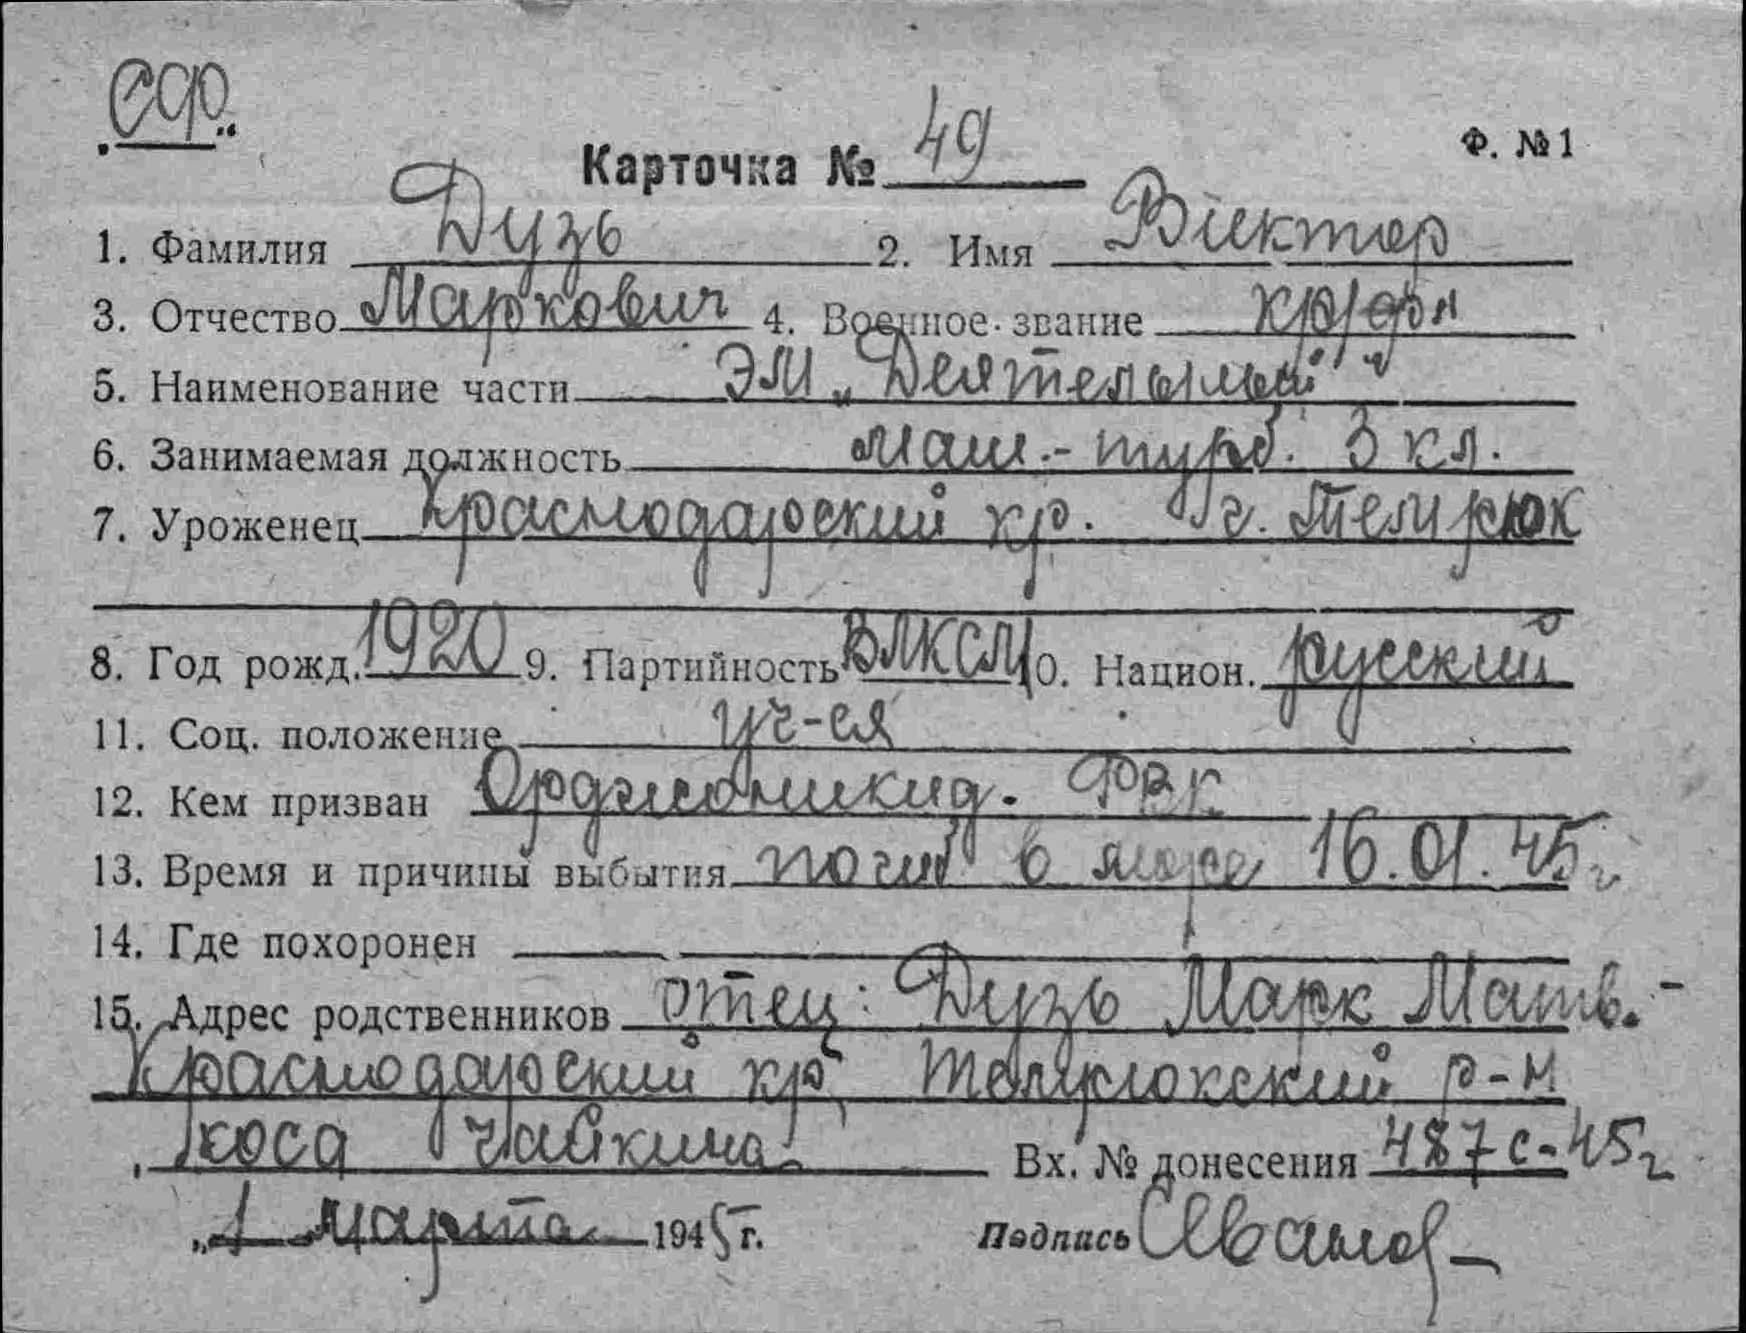 сф.
Карточка № 49 Ф. № 1
1. Фамилия Дузь 2. Имя Виктор
3. Отчество Маркович 4. Военное звание кр/фл
5. Наименование части ЭМ „Деятельный"
6. Занимаемая должность маш.-турб. 3 кл.
7. Уроженец Краснодарский кр. г. Темрюк
8. Год рожд. 1920 9. Партийность ВЛКСМ 10. Национ. русский
11. Соц. положение уч-ся
12. Кем призван Орджоникид. РВК
13. Время и причины выбытия погиб в море 16.01.45 г
14. Где похоронен
15. Адрес родственников отец: Дузь Марк Матв.-
Краснодарский кр, Темрюкский р-н
коса Чайкина Вх. № донесения 487с-45г
„1 марта 1945 г. Подпись Иванов